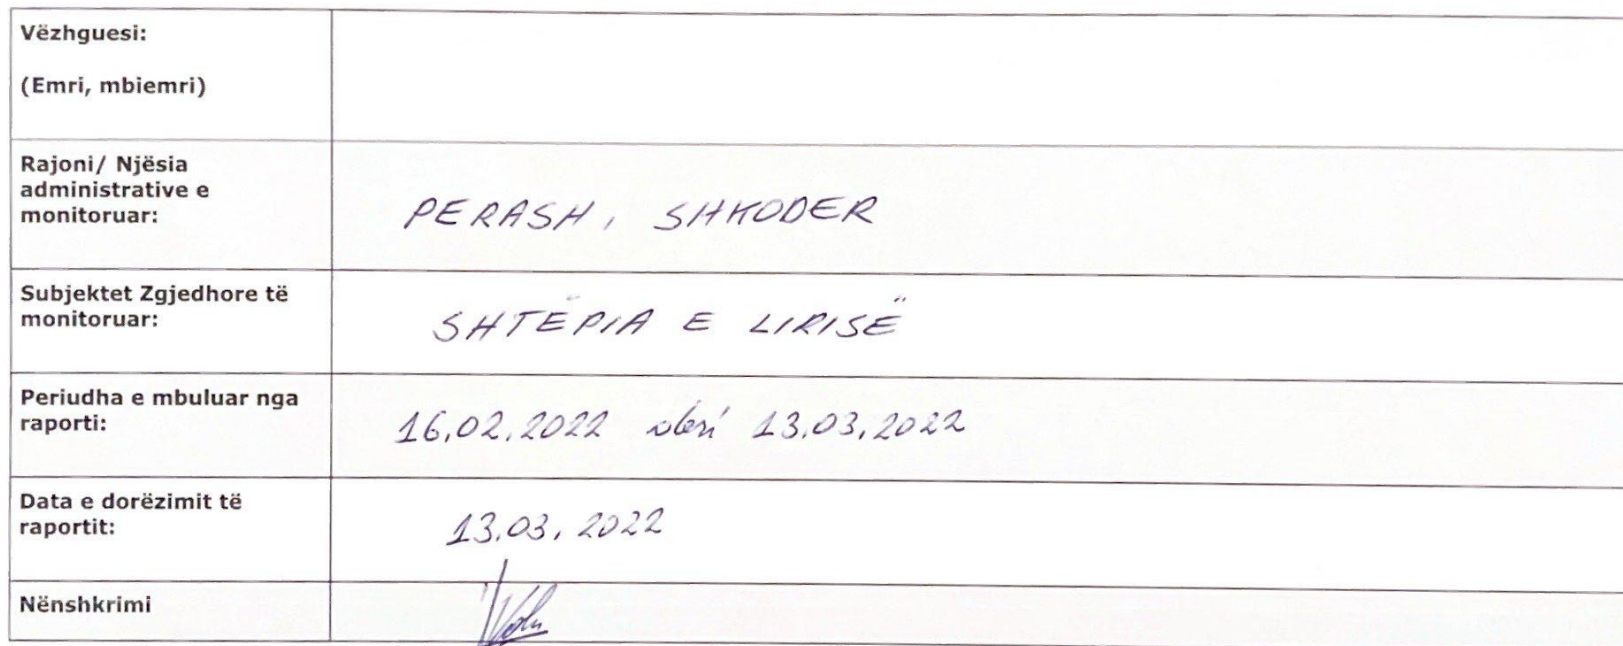 Vëzhguesi:
(Emri, mbiemri)
Rajoni/ Njësia
administrative e
monitoruar:
PERASH, SHKODER
Subjektet Zgjedhore të
monitoruar:
SHTËPIA E LIRISË
Periudha e mbuluar nga
raporti:
16.02.2022 deri 13.03.2022
Data e dorëzimit të
raportit:
13.03.2022
Nënshkrimi